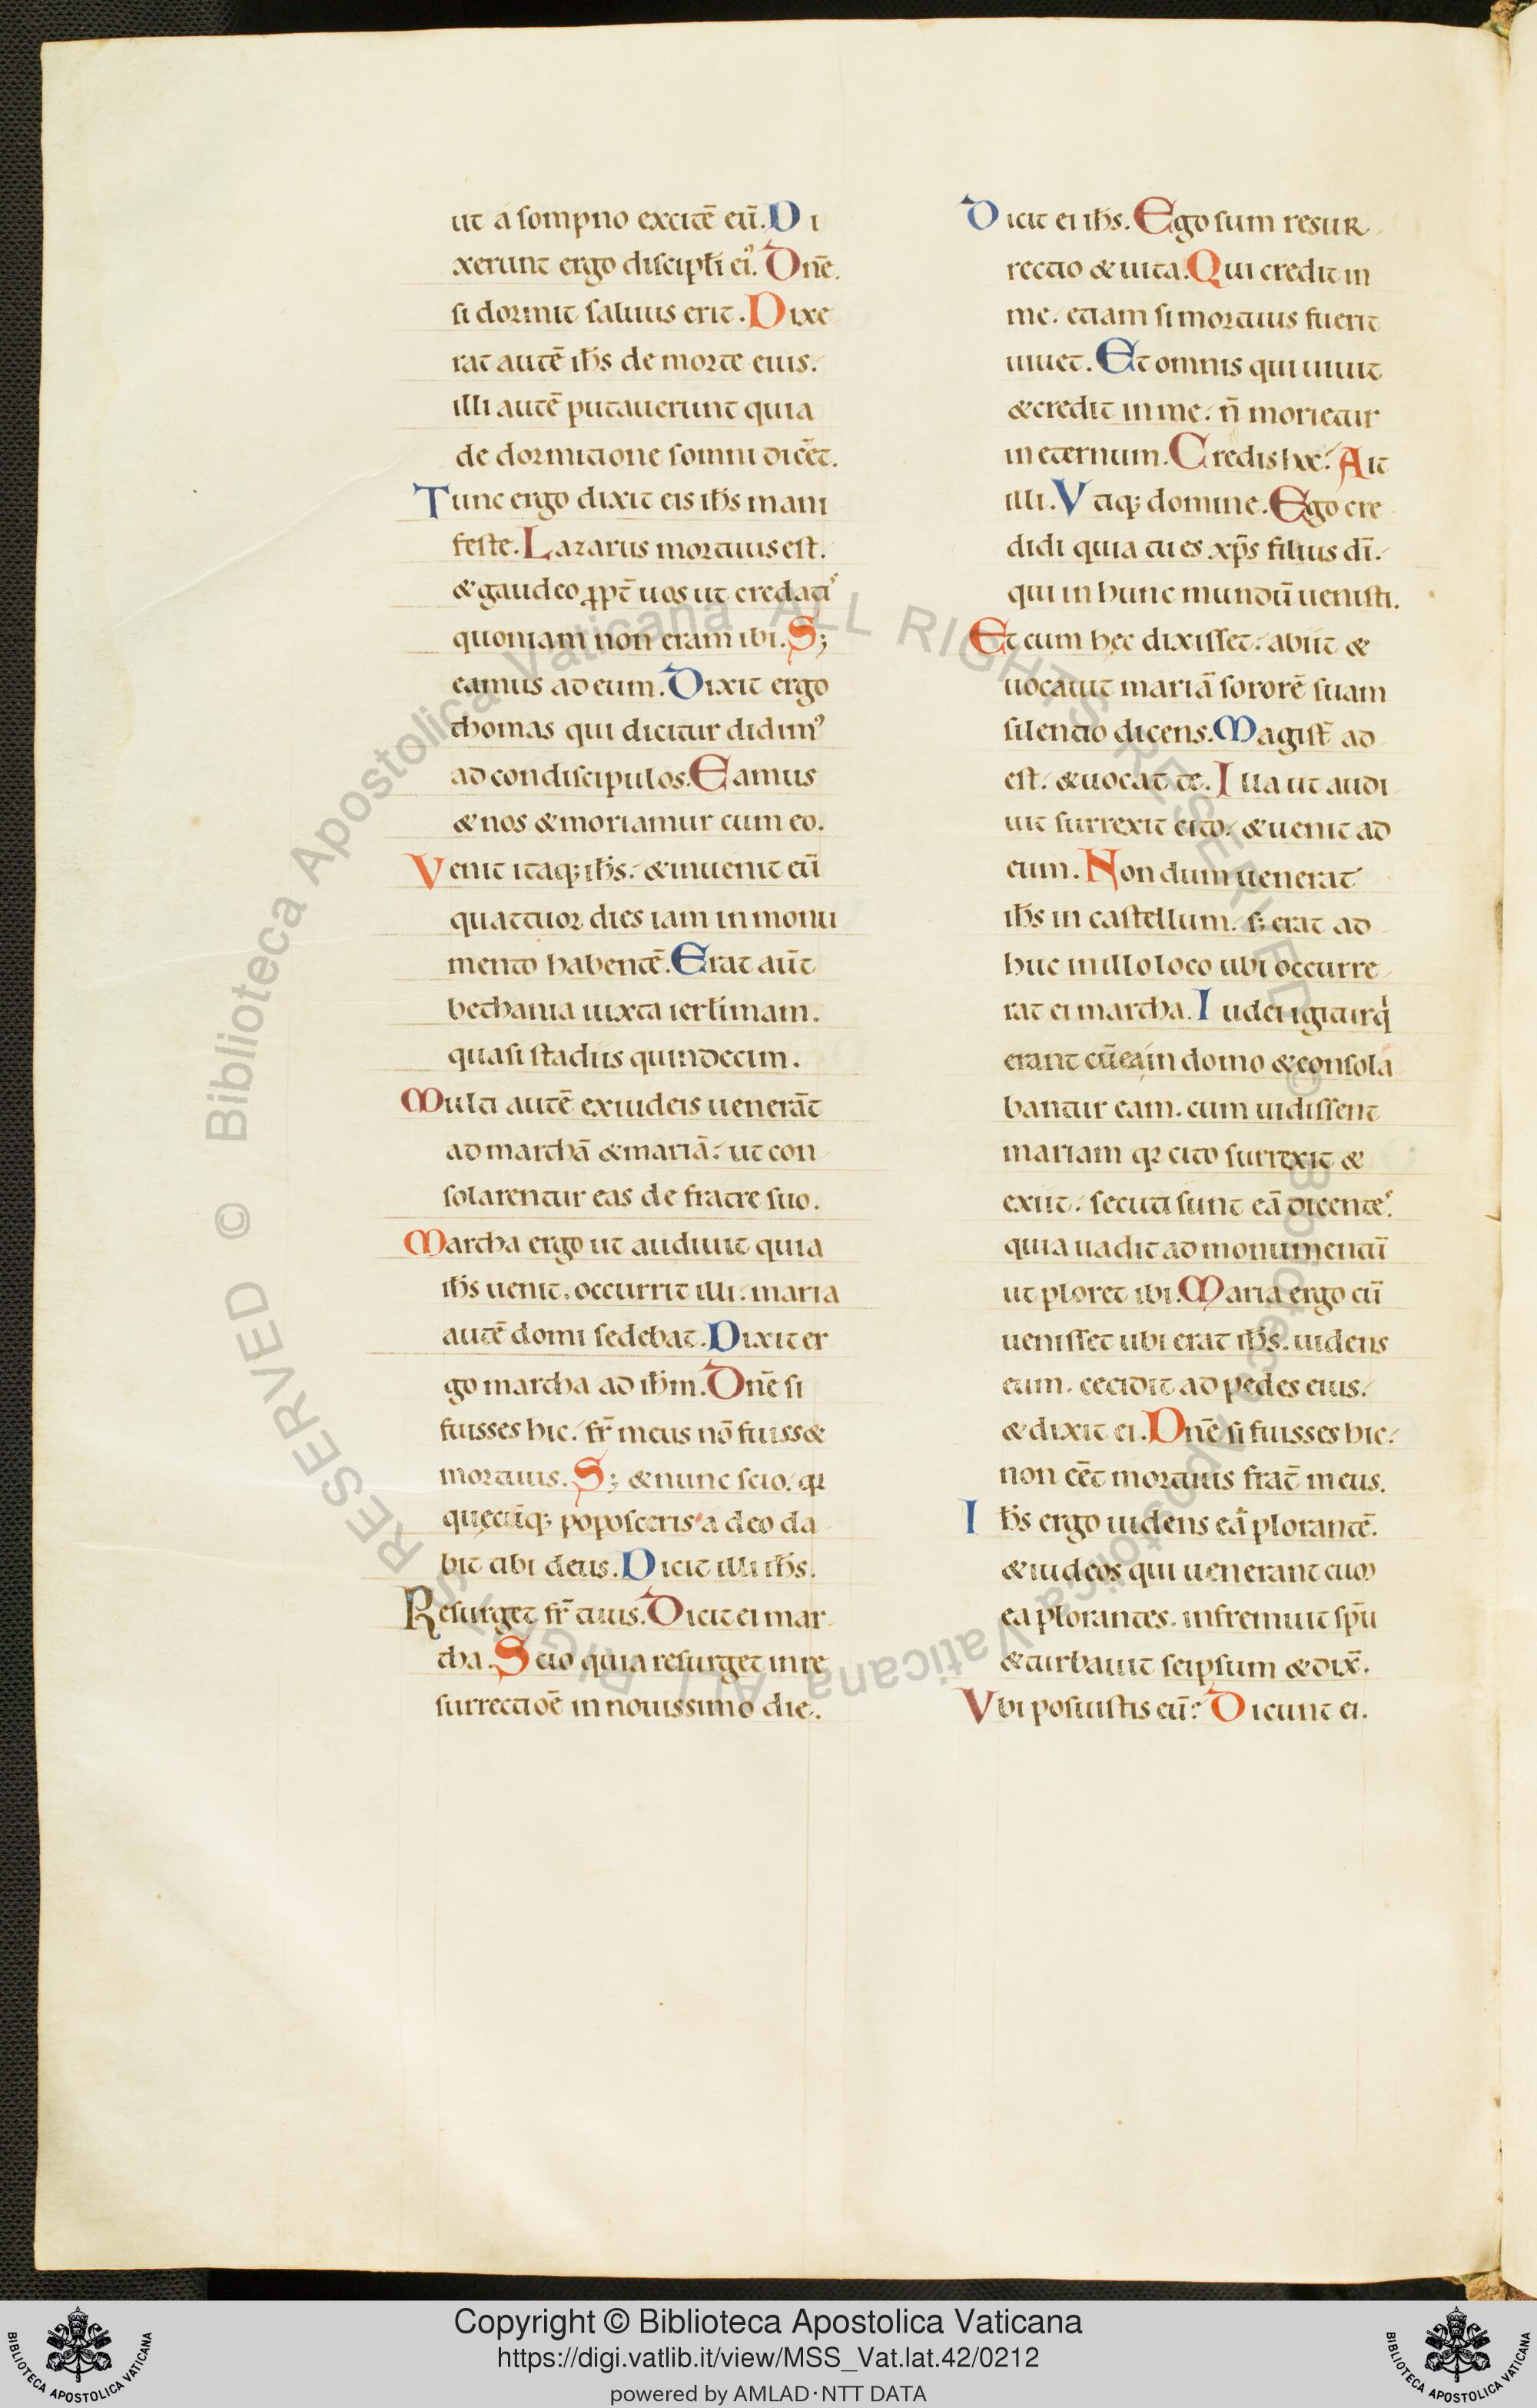 ut a sompno excitē eū. Di
xerunt ergo discipłi ei᾽. Dnē.
si dormit saluus erit. Dixe
rat autē ihs̄ de morte eius.
illi autē putauerunt quia
de dormitione somni dicēt.
Tunc ergo dixit eis ihs̄ mani
feste. Lazarus mortuus est.
& gaudeo ꝓpt̄ uos ut credatis
quoniam non eram ibi. S;
eamus ad eum. Dixit ergo
thomas qui dicitur didimꝰ
ad condiscipulos. Eamus
& nos & moriamur cum eo.
Venit itaq; ihs̄. & inuenit eū
quattuor dies iam in monu
mento habentē. Erat aūt
bethania iuxta ierłimam.
quasi stadiis quindecim.
Multi autē ex iudeis uenerāt
ad marthā & mariā. ut con
solarentur eas de fratre suo.
Martha ergo ut audiuit quia
ihs̄ uenit. occurrit illi. maria
autē domi sedebat. Dixit er
go martha ad ihm̄. Dnē si
fuisses hic. fr̄ meus nō fuiss&
mortuus. S; & nunc scio. qꝛ
quecūq; poposceris a deo da
bit tibi deus. Dicit illi ihs̄.
Resurget fr̄ tuus. Dicit ei mar
tha. Scio quia resurget in re
surrectiōe in nouissimo die.
Dicit ei ihs̄. Ego sum resur
rectio & uita. Qui credit in
me. etiam si mortuus fuerit
uiuet. Et omnis qui uiuit
& credit in me. n̄ morietur
in eternum. Credis hoc? Ait
illi. Vtiq; domine. Ego cre
didi quia tu es xp̄s filius dī.
qui in hunc mundū uenisti.
Et cum hec dixisset. abiit &
uocauit mariā sororē suam
silentio dicens. Magist̄ ad
est. & uocat te. Illa ut audi
uit surrexit cito. & uenit ad
eum. Non dum uenerat
ihs̄ in castellum. s; erat ad
huc in illo loco ubi occurre
rat ei martha. Iudei igitur qͥ
erant cū ea in domo & consola
bantur eam. cum uidissent
mariam qꝛ cito surrexit &
exiit. secuti sunt eā dicentes.
quia uadit ad monumentū
ut ploret ibi. Maria ergo cū
uenisset ubi erat ihs̄. uidens
eum. cecidit ad pedes eius.
& dixit ei. Dnē si fuisses hic.
non eēt mortuus frat̄ meus.
Ihs̄ ergo uidens eā plorantē.
& iudeos qui uenerant cum
ea plorantes. infremuit spū
& turbauit seipsum & dix̄.
Vbi posuistis eū? Dicunt ei.
© Biblioteca Apostolica Vaticana ALL RIGHTS RESERVED
© Biblioteca Apostolica Vaticana ALL RIGHTS RESERVED
Copyright © Biblioteca Apostolica Vaticana
https://digi.vatlib.it/view/MSS_Vat.lat.42/0212
powered by AMLAD·NTT DATA
BIBLIOTECA APOSTOLICA VATICANA
BIBLIOTECA APOSTOLICA VATICANA